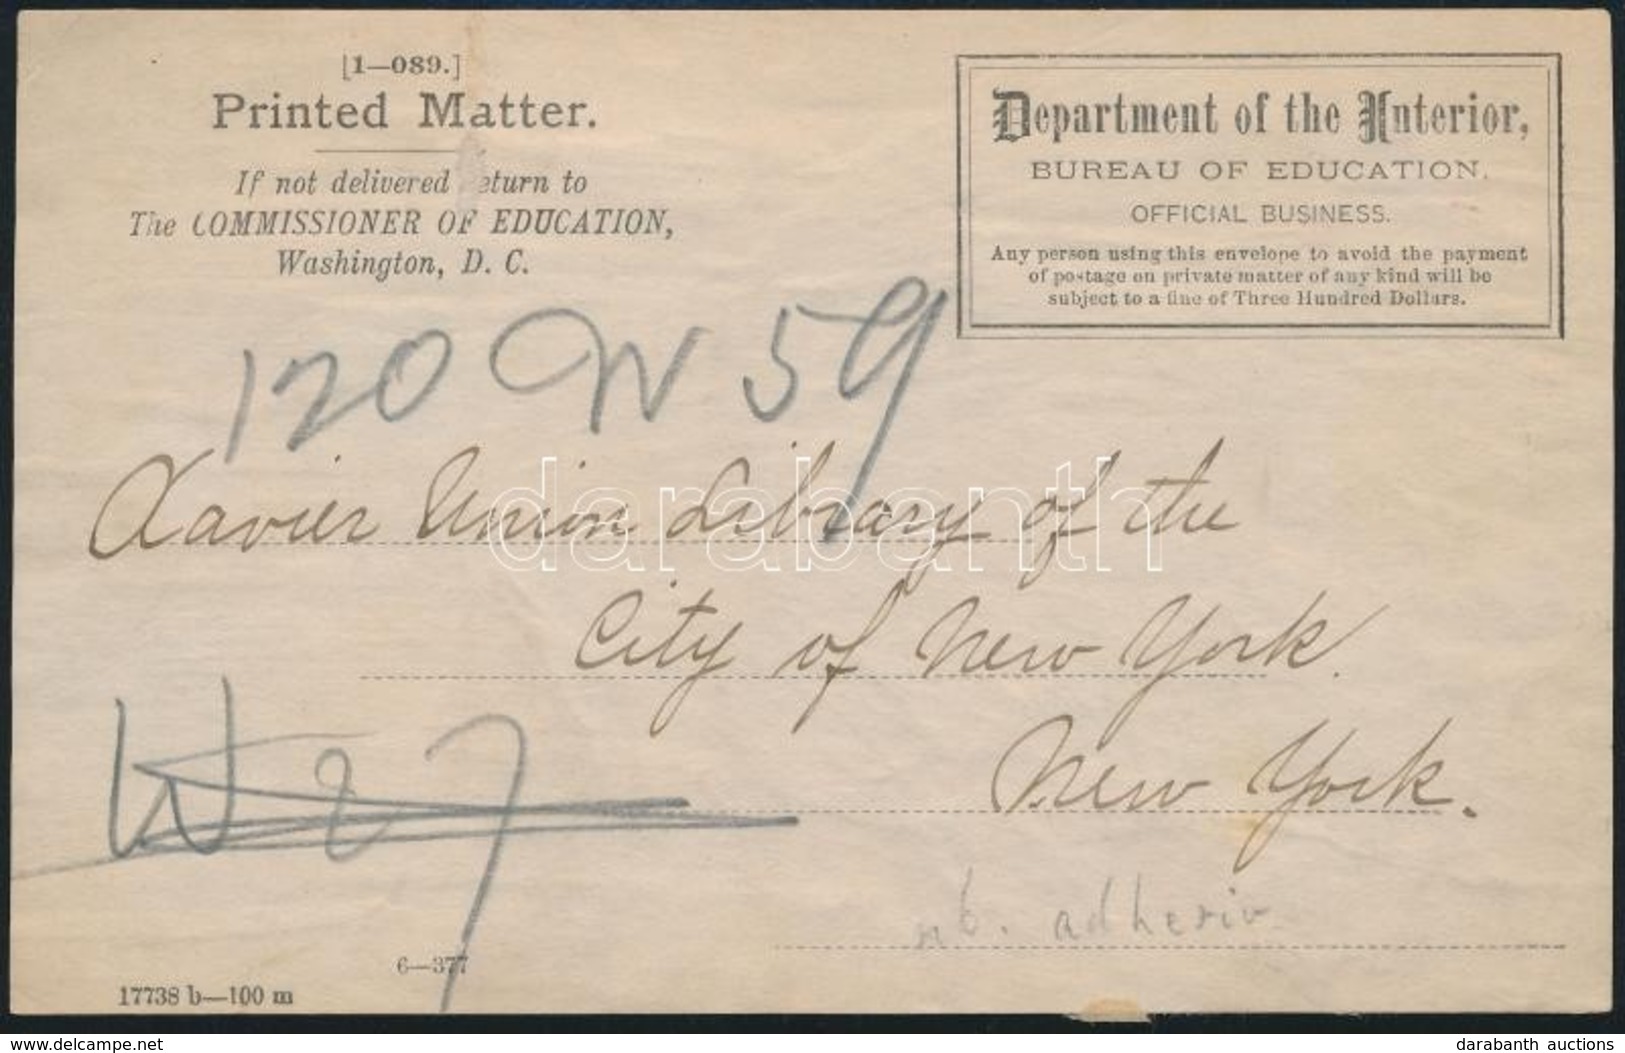 [1—089.]
Printed Matter.
If not delivered return to
The COMMISSIONER OF EDUCATION,
Washington, D. C.
Department of the Interior,
BUREAU OF EDUCATION.
OFFICIAL BUSINESS.
Any person using this envelope to avoid the payment
of postage on private matter of any kind will be
subject to a fine of Three Hundred Dollars.
120 W 59
Xavier Union Library of the
darabanth
City of New York.
W 27
New York.
nb. adheriv
6—377
17738 b—100 m
www.delcampe.net
darabanth auctions